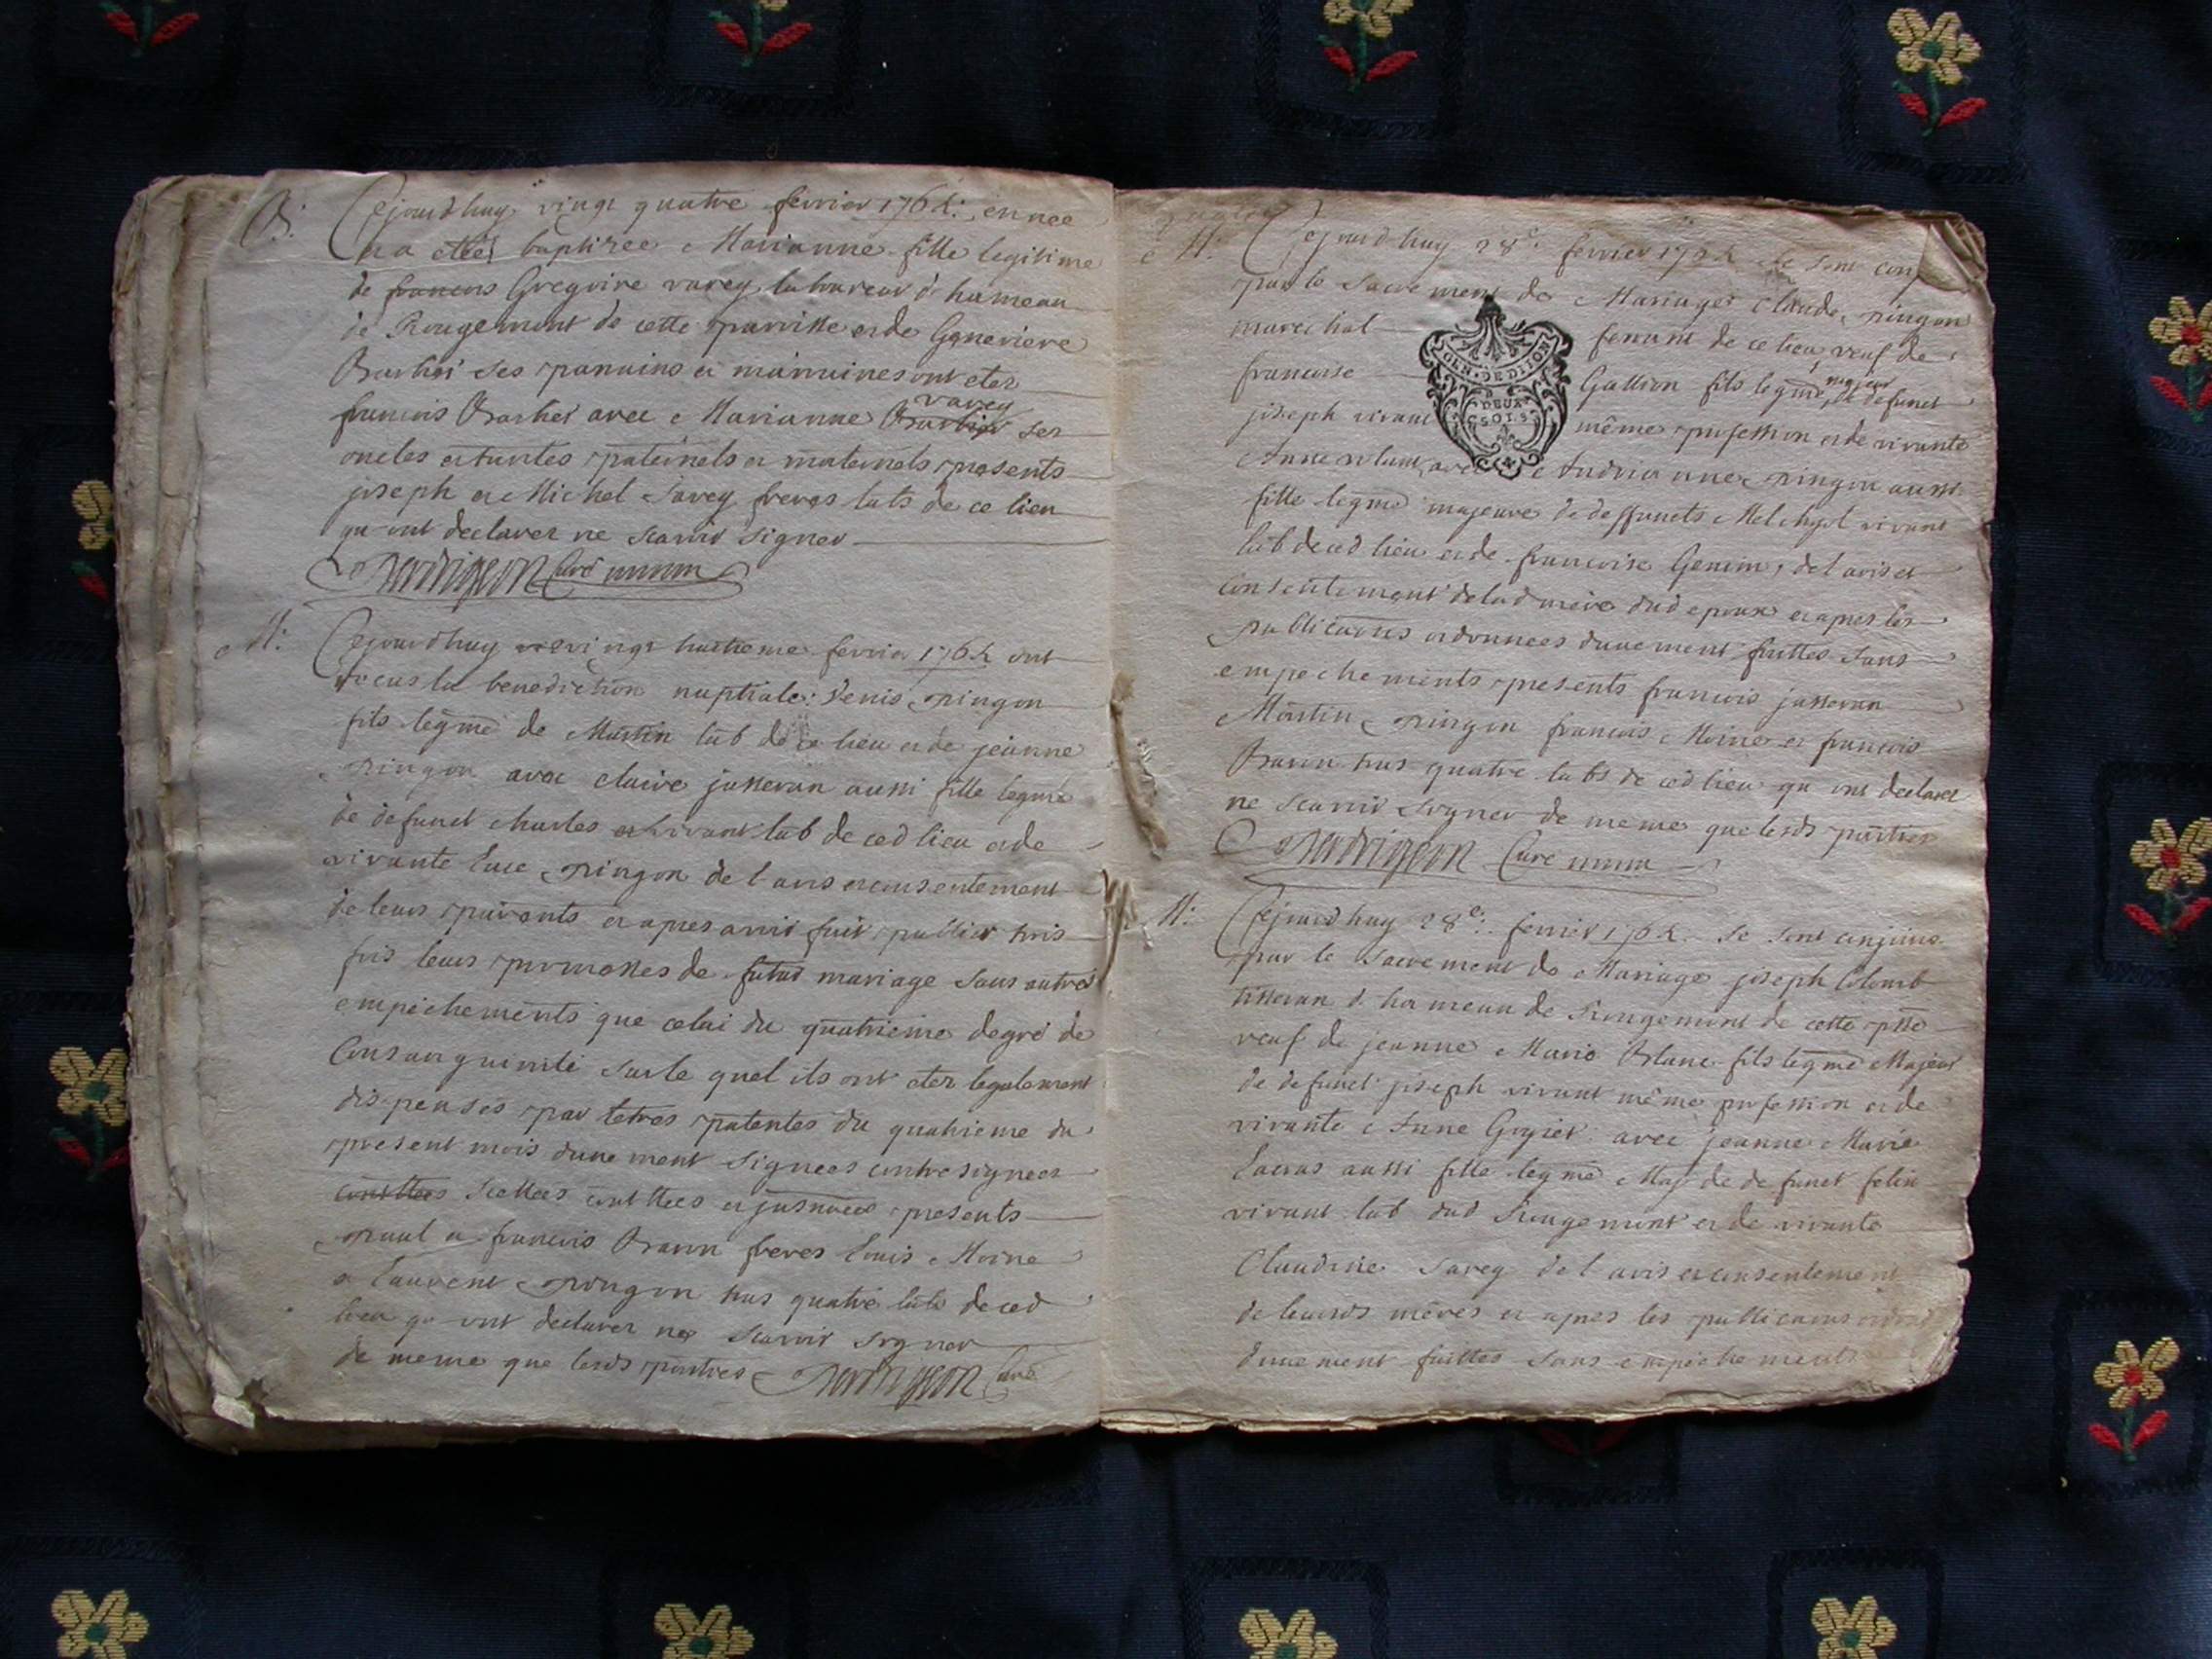 B: Cejourdhuy vingt quatre fevrier 1764: en née
et a été baptizee Marianne fille legitime
de francois Gregoire varey laboureur d. hameau
de Rougemont de cette parroisse et de Genevieve
Barbier ses parrains et marraines ont eter
francois Barbet avec Marianne Barbier varey ses
oncles et tantes paternels et maternels presents
joseph et Michel Savey freres labs de ce lieu
qu ont declarer ne scavoir signer
Perdrigeon Curé
M: Cejourdhuy vingt huitieme fevrier 1764 ont
recus la benediction nuptiale: Denis pingon
fils legme de Martin lab de ce lieu et de jeanne
pingon avec claire jasseran aussi fille legme
de defunct charles vivant lab de ced lieu et de
vivante Luce pingon de l'avis et consentement
de leurs parents et apres avoir fait publier trois
fois leurs promesses de futur mariage sans autres
empéchements que celui du quatrieme degré de
Consanguinité surle quel ils ont eter legalement
dispensés par letres patentes du quatrieme du
present mois duuement signees contresignees
scellees presents
paul et francois Baron freres louis Moine
et laurent pingon tous quatre labs de ced
lieu qu ont declarer ne scavoir signer
de meme que lesds parties Perdrigeon Curé
M: Cejourdhuy 28e: fevrier 1764 se sont conj
par le Sacrement de Mariage Claude pingon
marechal ferrant de ce lieu veuf de
francoise Gallion fils legme majeur de defunct
joseph vivant même profession et de vivante
Anne avec Andrianne pingon aussi
fille legme majeure de deffuncts Melchyol vivant
lab de ced lieu et de francoise Genin, de l'avis et
consentement delad mère dud epoux et apres les
publications ordonnees duuement faittes sans
empechements presents francois jasseran
Martin pingon francois Moine et francois
Baron tous quatre labs de ced lieu qu ont declarer
ne scavoir signer de meme que lesds parties
Perdrigeon Curé
M: Cejourdhuy 28e: fevrier 1764 se sont conjoins
par le Sacrement de Mariage joseph Colomb
tisseran d. hameau de Rougemont de cette psse
veuf de jeanne Marie Blanc fils legme Majeur
de defunct joseph vivant même profession et de
vivante Anne avec jeanne Marie
Lacras aussi fille legme Maj de defunct felix
vivant lab dud Rougemont et de vivante
Claudine Savey de l'avis et consentement
de leursds mères et apres les publications ordon
duuement faittes sans empéchements
GEN. DE DIJON
DEUX
SOLS